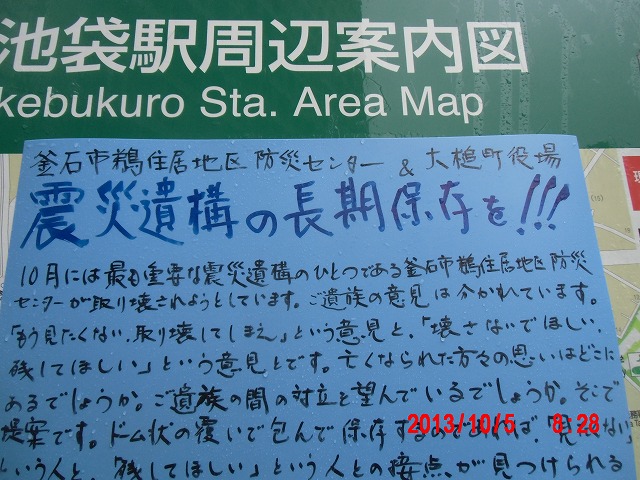 池袋駅周辺案内図
kebukuro Sta. Area Map
釜石市鵜住居地区防災センター & 大槌町役場
震災遺構の長期保存を!!!
10月には最も重要な震災遺構のひとつである釜石市鵜住居地区防災
センターが取り壊されようとしています。ご遺族の意見は分かれています。
「もう見たくない、取り壊してしまえ」という意見と、「壊さないでほしい、
残してほしい」という意見とです。亡くなられた方々の思いはどこに
あるでしょうか。ご遺族の間の対立を望んでいるでしょうか。そこで
提案です。ドーム状の覆いで包んで保存するのであれば、「見たくない」
という人と、「残してほしい」という人との接点が見つけられる
2013/10/5 8:28